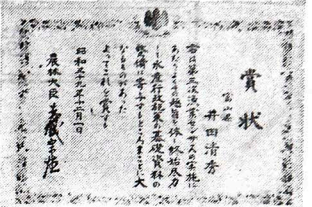 賞状
富山県
井田清秀
君は第三次漁業センサスの実施に
あたりよくその趣旨を体し終始尽力
し水産行政施策の基礎資料の
整備に寄与するところまことに大
なるものであった
よってこれを賞する
昭和三十九年十二月一日
農林大臣 赤城宗徳